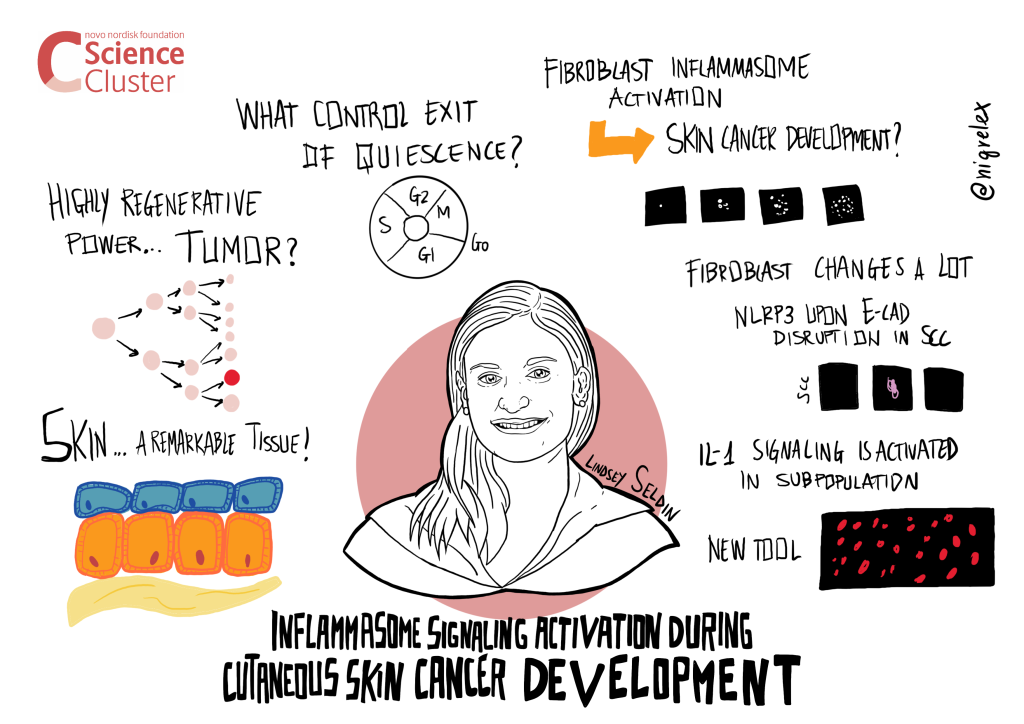 novo nordisk foundation
Science
Cluster
WHAT CONTROL EXIT
OF QUIESCENCE?
G2
S
M
G1
G0
HIGHLY REGENERATIVE
POWER... TUMOR?
SKIN... A REMARKABLE TISSUE!
FIBROBLAST INFLAMMASOME
ACTIVATION
SKIN CANCER DEVELOPMENT?
@niqrelex
FIBROBLAST CHANGES A LOT
NLRP3 UPON E-CAD
DISRUPTION IN SCC
SCC
IL-1 SIGNALING IS ACTIVATED
IN SUBPOPULATION
NEW TOOL
LINDSEY SELDIN
INFLAMMASOME SIGNALING ACTIVATION DURING
CUTANEOUS SKIN CANCER DEVELOPMENT